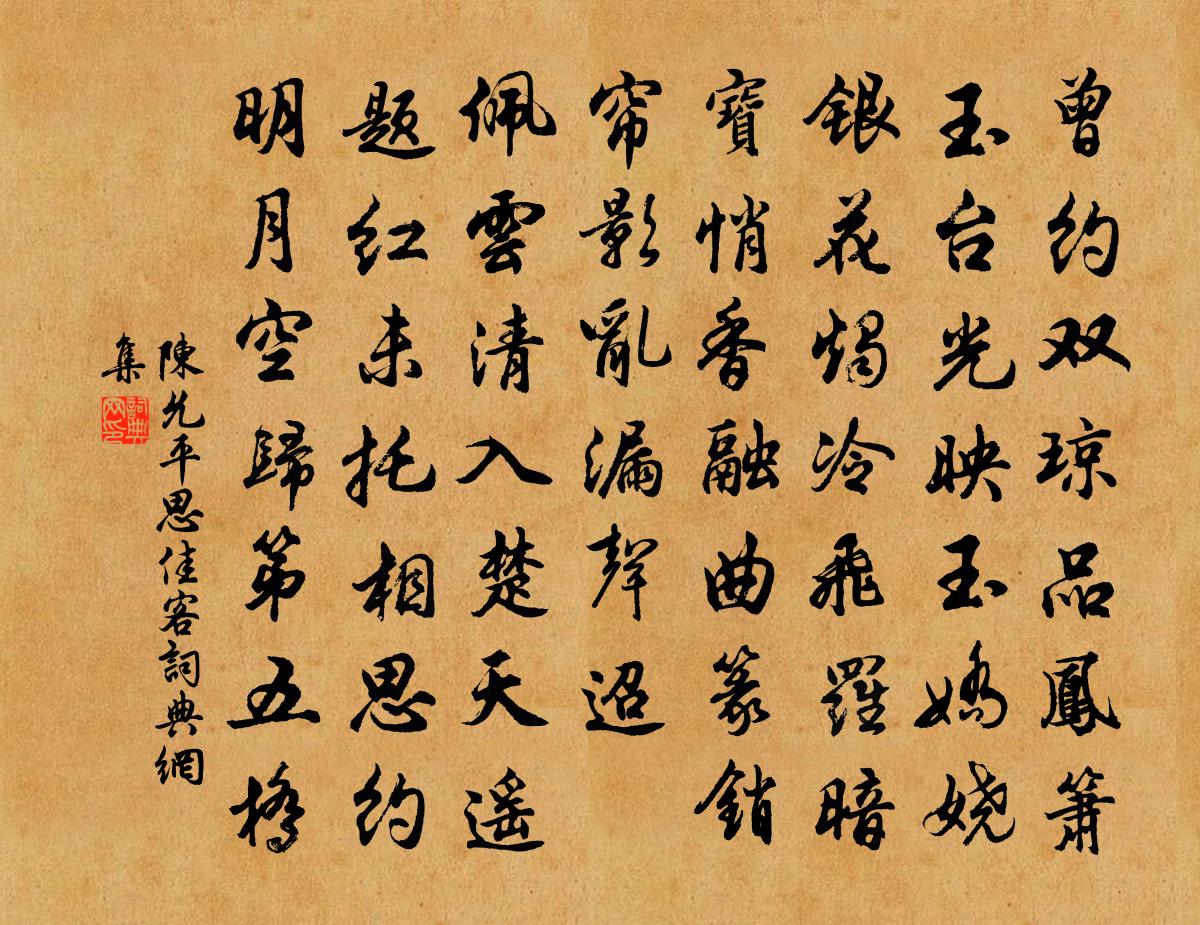 曾约双琼品鳳箫
玉台光映玉嬌娆
銀花燭冷飛羅暗
寶悄香融曲篆銷
帘影亂漏聲迢
佩雲清入楚天遥
题红未托相思约
明月空歸第五橋
陳允平思佳客詞典網
集
詞典
网印